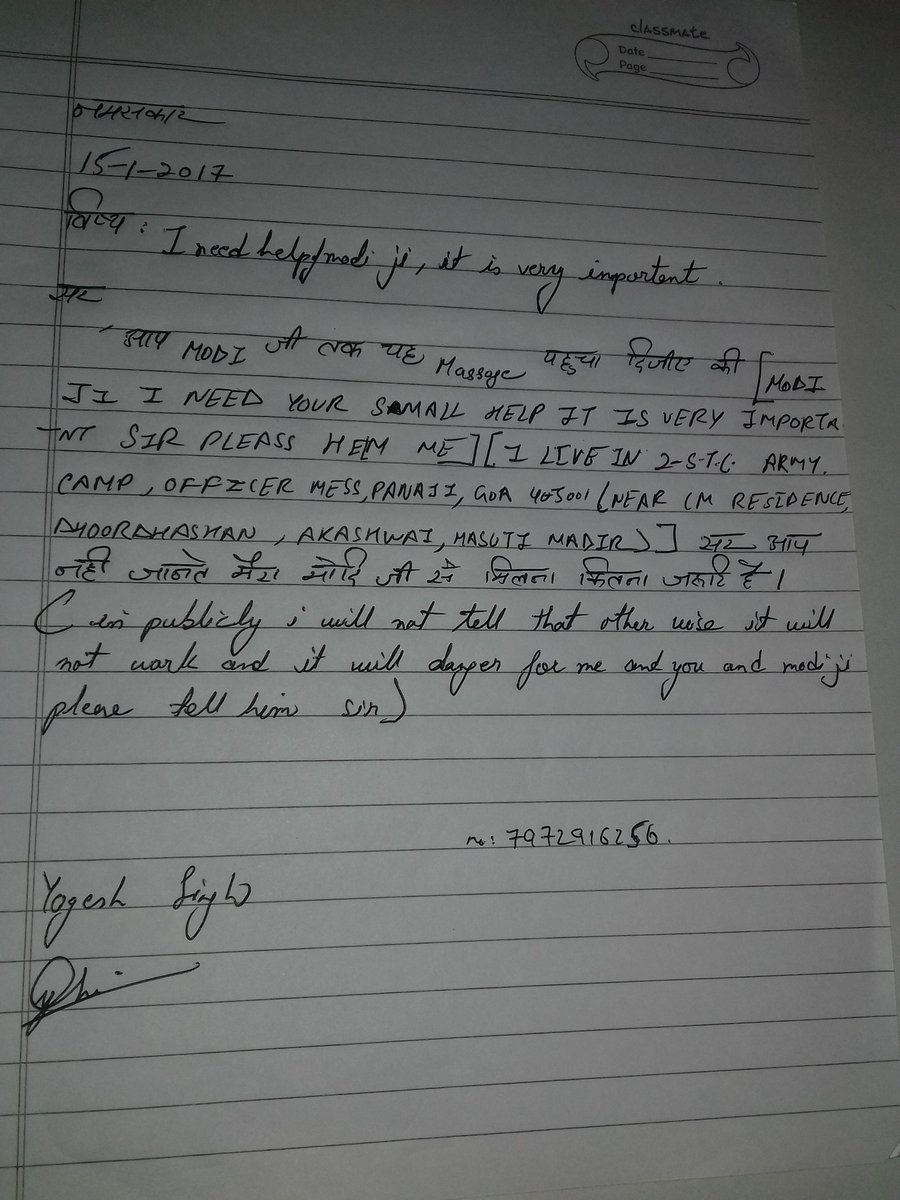 classmate
Date
Page
नमस्कार
15-1-2017
विषय : I need help modi ji, it is very importent .
सर
आप MODI जी तक यह Massage पहुचा दिजीए की [MODI
JI I NEED YOUR SMALL HELP IT IS VERY IMPORTA
NT SIR PLEASS HELM ME] [I LIVE IN 2-S.T.C. ARMY.
CAMP, OFFICER MESS, PANAJI, GOA 403001 (NEAR CM RESIDENCE,
DHOORDHASHAN, AKASHWAI, MASUTI MADIR)] सर आप
नही जानते मैरा मोदि जी से मिलना कितना जरूरि है।
( in publicly i will not tell that other wise it will
not wark and it will danger for me and you and modi ji
please tell him sir)
no: 7972916256.
Yogesh Singh